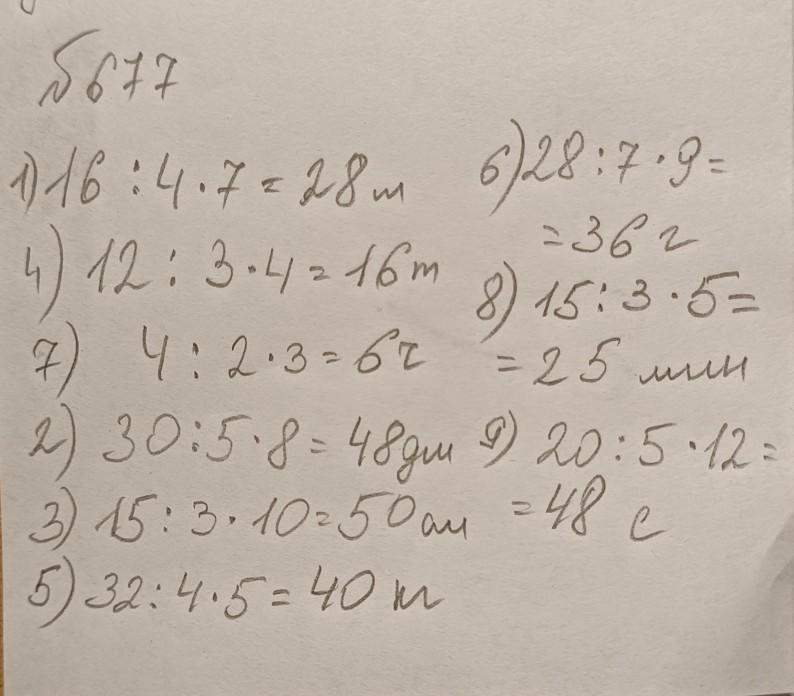 №677
1) 16 : 4 · 7 = 28 м
4) 12 : 3 · 4 = 16 т
7) 4 : 2 · 3 = 6 ч
2) 30 : 5 · 8 = 48 дм
3) 15 : 3 · 10 = 50 см
5) 32 : 4 · 5 = 40 кг
6) 28 : 7 · 9 =
= 36 г
8) 15 : 3 · 5 =
= 25 мин
9) 20 : 5 · 12 =
= 48 с